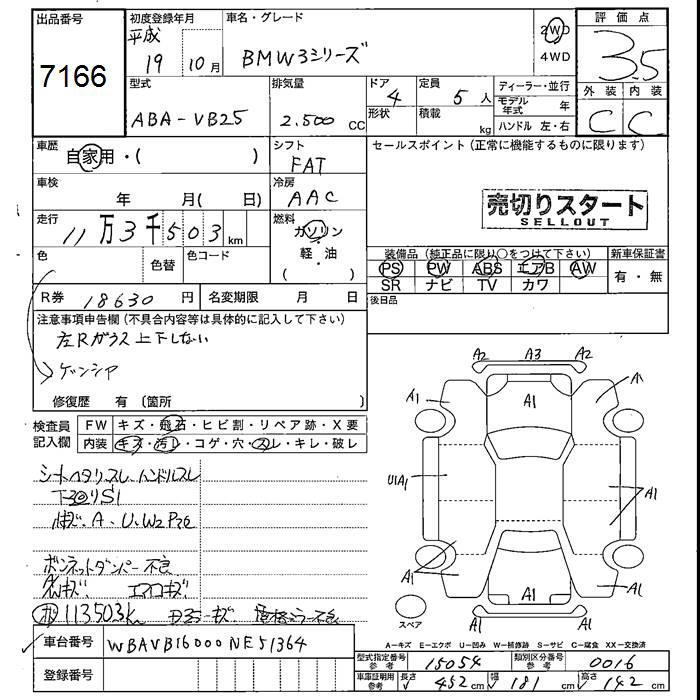 出品番号
7166
初度登録年月
平成
19 10月
車名・グレード
BMW3シリーズ
2WD
4WD
評価点
3.5
外装 内装
C C
型式
ABA-VB25
排気量
2.500 CC
ドア
4
形状
定員
5人
積載
kg
ディーラー・並行
モデル年式 年
ハンドル 左・右
車歴
自家用・( )
シフト
FAT
車検
年 月( 日)
冷房
AAC
セールスポイント(正常に機能するものに限ります)
売切りスタート
SELLOUT
走行
11万3千503km
燃料
ガソリン
軽・油
( )
色
色替
色コード
装備品(純正品に限り○をつけて下さい)
PS PW ABS エアB AW
SR ナビ TV カワ
新車保証書
有・無
後日品
R券 18630円
名変期限 月 日
注意事項申告欄(不具合内容等は具体的に記入して下さい)
左Rガラス上下しない
ゲンシア
修復歴 有(箇所 )
検査員
記入欄
FW キズ・飛石・ヒビ割・リペア跡・X要
内装 キズ・汚レ・コゲ・穴・スレ・キレ・破レ
シートヘタリスレ、ハンドルスレ
ボンネットダンパー不良
エアロキズ
113503km
車台番号 WBAVB16000NE51364
登録番号
A2 A3 A2
A1 A1 A1
U1A1 A1
A1 A1 A1
A1 A1
スペア
A-キズ E-エクボ U-凹み W-補修跡 S-サビ C-腐食 XX-交換済
型式指定番号 参考 15054
類別区分番号 参考 0016
車庫証明用 参考 長さ 452cm 幅 181cm 高さ 142cm